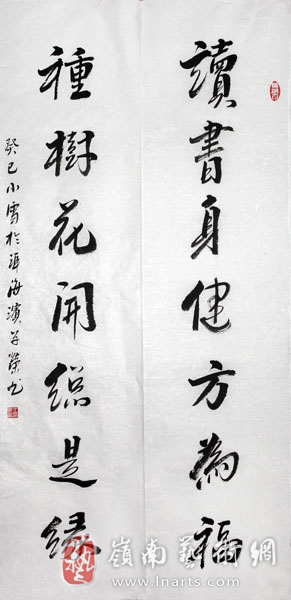 讀書身健方為福
種樹花開總是緣
癸巳小雪於洱海濱子榮书
嶺南藝術網
www.lnarts.com